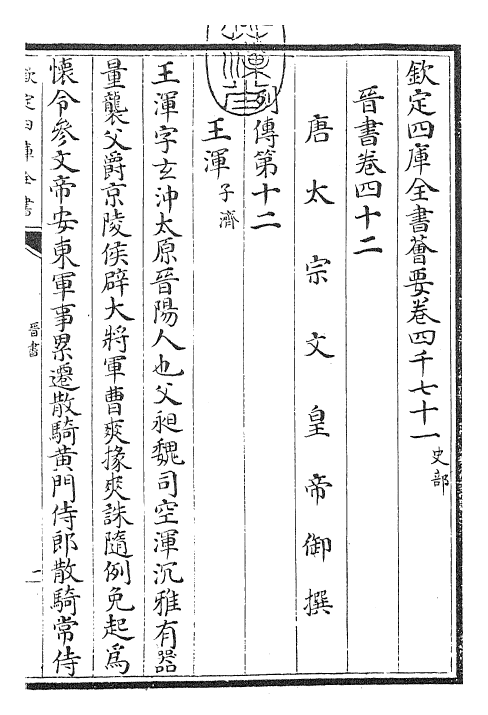 欽定四庫全書薈要卷四千七十一 史部
晉書卷四十二
唐太宗文皇帝御撰
列傳第十二
王渾 子濟
王渾字玄沖太原晉陽人也父昶魏司空渾沉雅有器
量襲父爵京陵侯辟大將軍曹爽掾爽誅隨例免起爲
懷令參文帝安東軍事累遷散騎黄門侍郎散騎常侍
欽定四庫全書
晉書
一